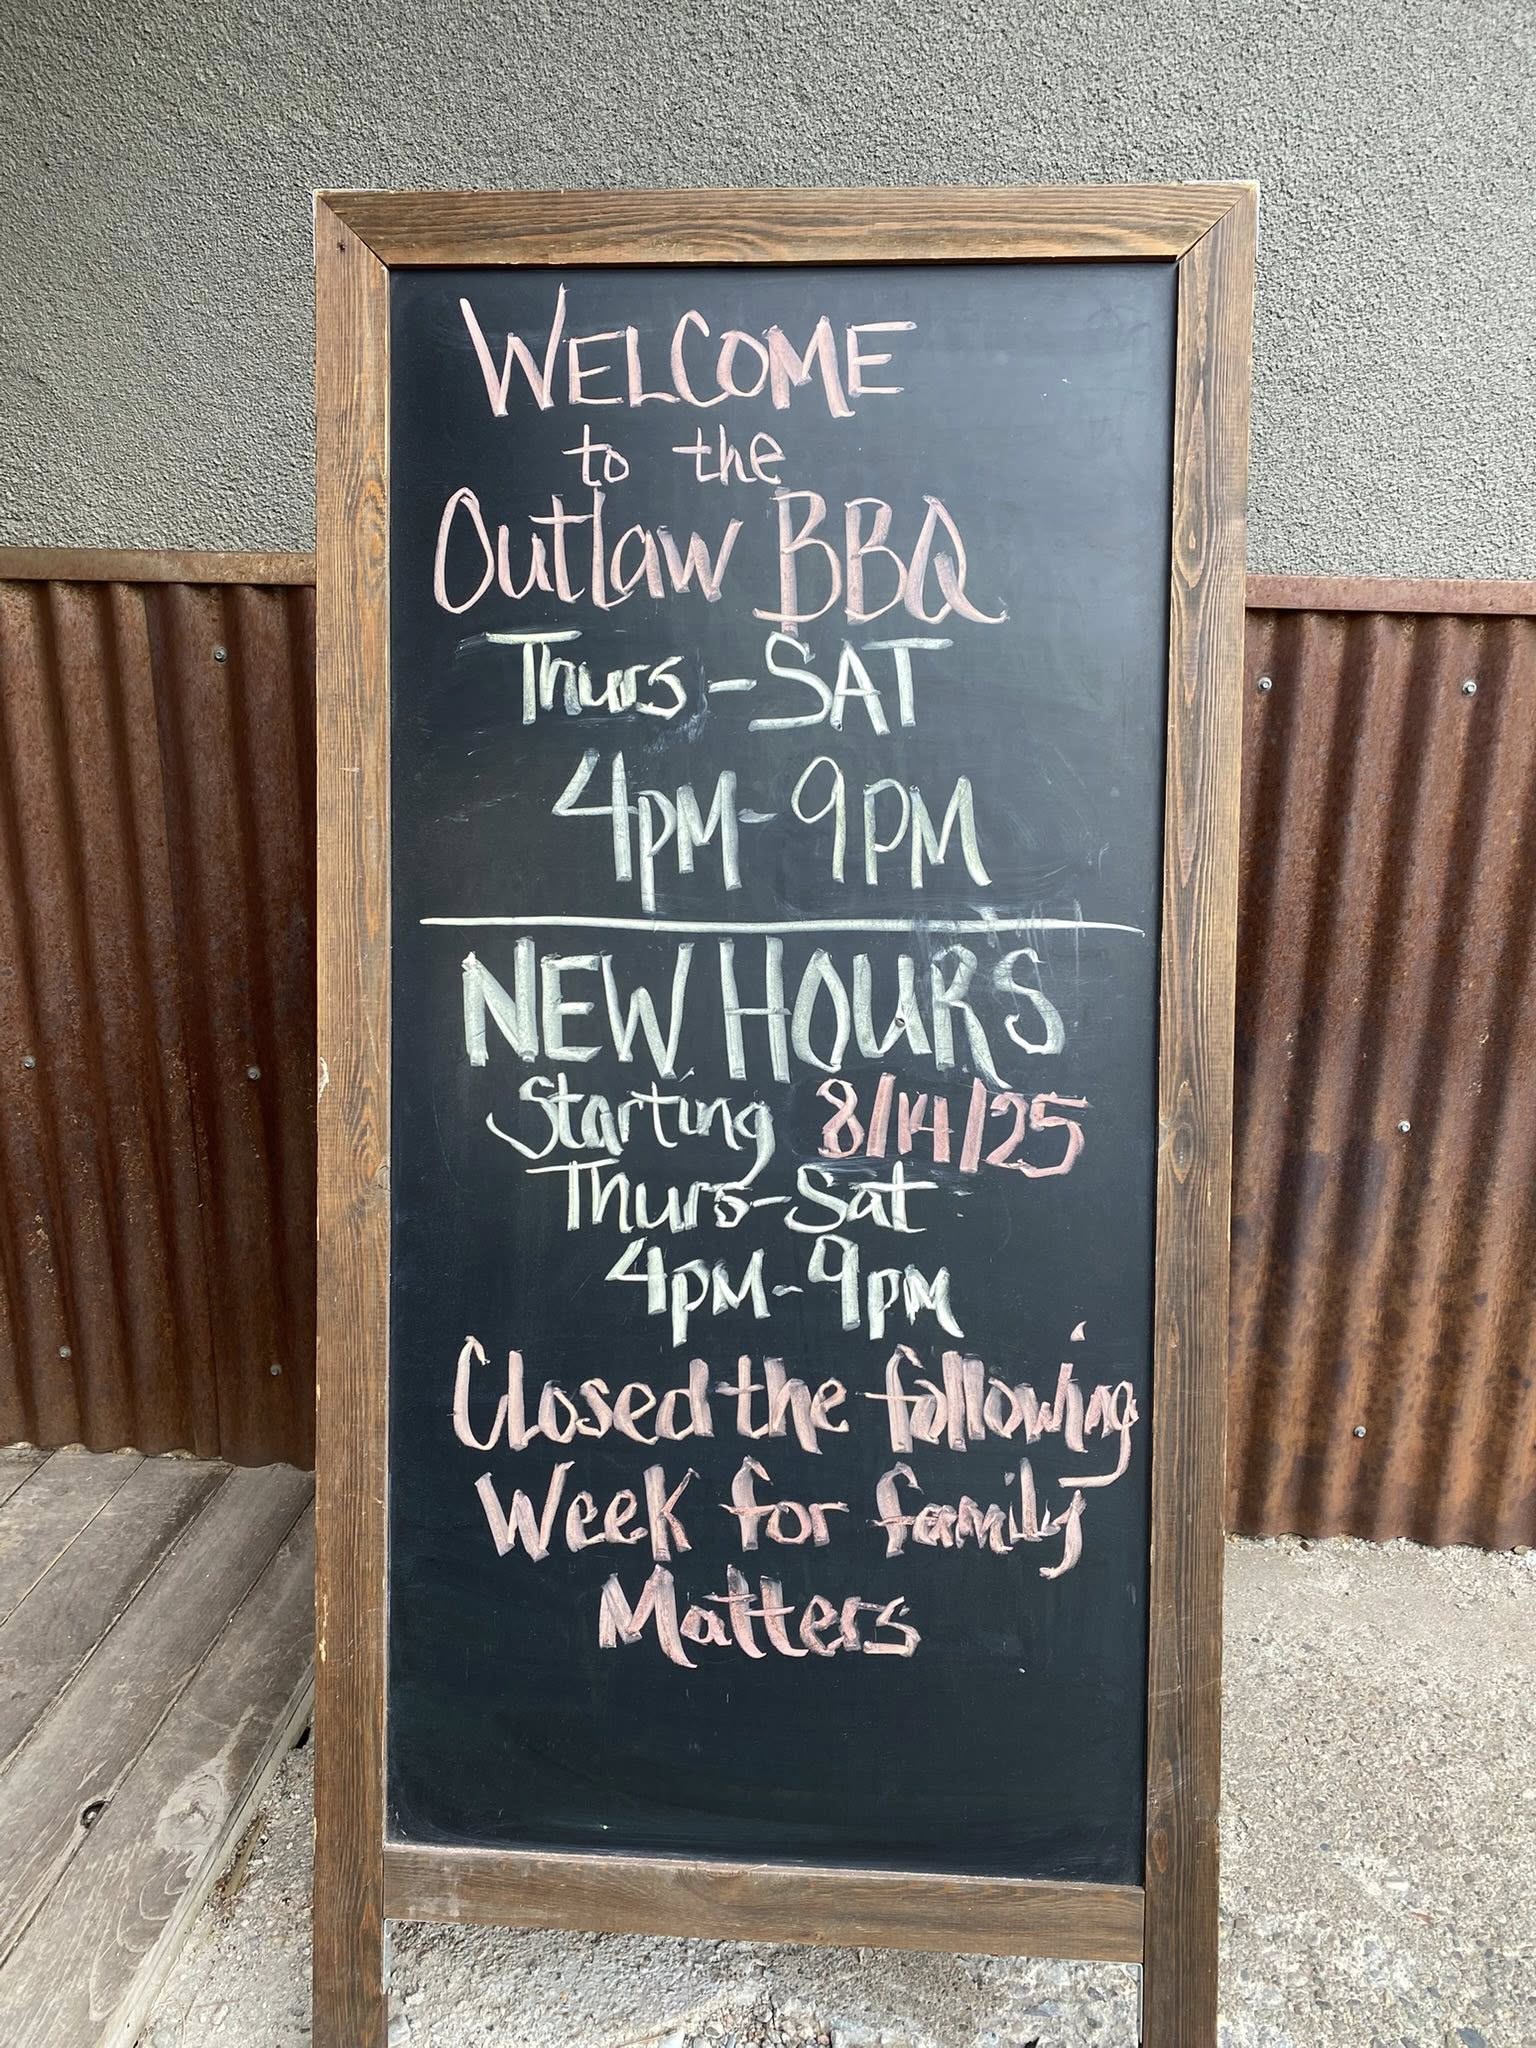 WELCOME
to the
Outlaw BBQ
Thurs-SAT
4PM-9PM
NEW HOURS
Starting 8/14/25
Thurs-Sat
4PM-9PM
Closed the following
Week for family
Matters